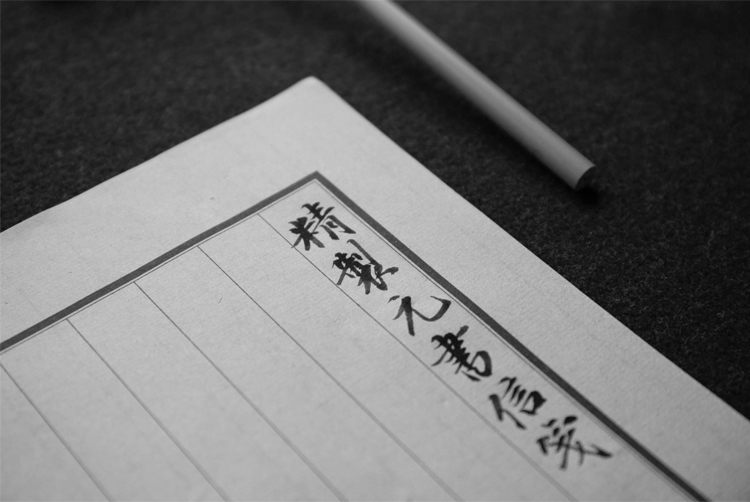 精製元書信箋